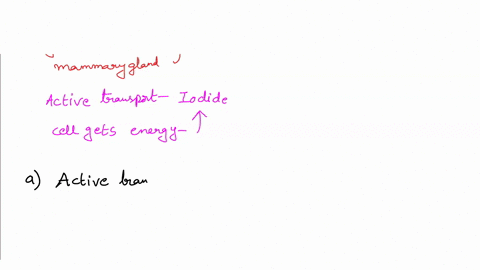 mammary gland
Active transport- Iodide
cell gets energy-
a) Active tran